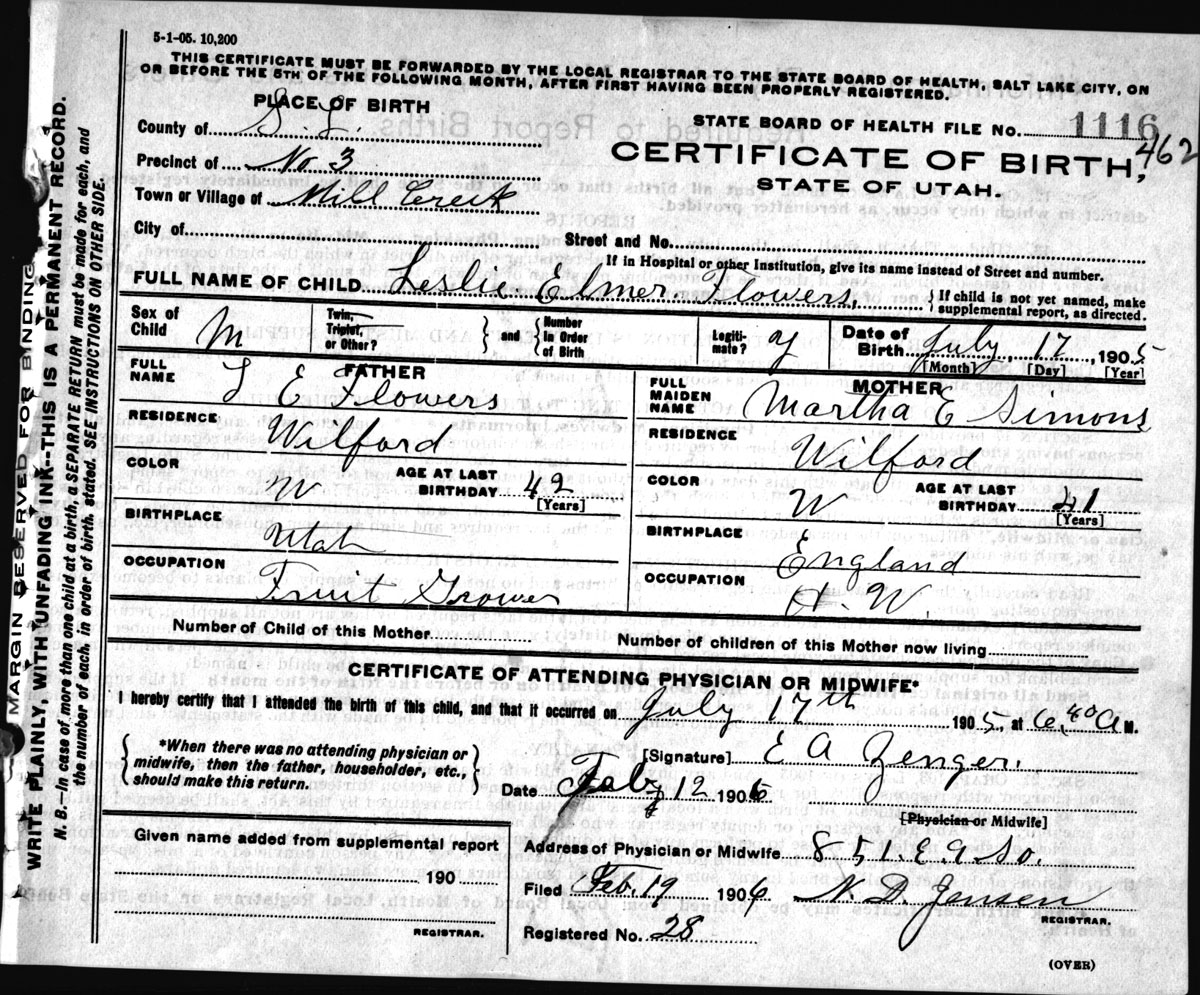 5-1-05. 10,200
THIS CERTIFICATE MUST BE FORWARDED BY THE LOCAL REGISTRAR TO THE STATE BOARD OF HEALTH, SALT LAKE CITY, ON
OR BEFORE THE 5TH OF THE FOLLOWING MONTH, AFTER FIRST HAVING BEEN PROPERLY REGISTERED.
PLACE OF BIRTH
STATE BOARD OF HEALTH FILE No. 1116
462
County of S. L.
CERTIFICATE OF BIRTH,
Precinct of No. 3
STATE OF UTAH.
Town or Village of Mill Creek
City of
Street and No.
If in Hospital or other Institution, give its name instead of Street and number.
FULL NAME OF CHILD Leslie Elmer Flowers. { If child is not yet named, make
supplemental report, as directed.
Sex of Child M
Twin, Triplet, or Other? } and { Number in Order of Birth
Legitimate? y
Date of Birth July, 17 1905
[Month] [Day] [Year]
FATHER
FULL NAME
E Flowers
RESIDENCE
Wilford
COLOR
W
AGE AT LAST BIRTHDAY 42
[Years]
BIRTHPLACE
Utah
OCCUPATION
Fruit Grower
MOTHER
FULL MAIDEN NAME
Martha E Simons
RESIDENCE
Wilford
COLOR
W
AGE AT LAST BIRTHDAY 41
[Years]
BIRTHPLACE
England
OCCUPATION
H. W.
Number of Child of this Mother
Number of children of this Mother now living
CERTIFICATE OF ATTENDING PHYSICIAN OR MIDWIFE.
I hereby certify that I attended the birth of this child, and that it occurred on July 17th 1905, at 6,40 A M.
{ *When there was no attending physician or
midwife, then the father, householder, etc.,
should make this return. }
[Signature] E A Zenger.
Date Feb 12 1906
[Physician or Midwife]
Given name added from supplemental report
190
REGISTRAR.
Address of Physician or Midwife 851. E. 9 So.
Filed Feb. 19 1906 N. D. Jensen
REGISTRAR.
Registered No. 28
(OVER)
MARGIN RESERVED FOR BINDING
WRITE PLAINLY, WITH UNFADING INK--THIS IS A PERMANENT RECORD.
N. B.—In case of more than one child at a birth, a SEPARATE RETURN must be made for each, and
the number of each, in order of birth, stated. SEE INSTRUCTIONS ON OTHER SIDE.